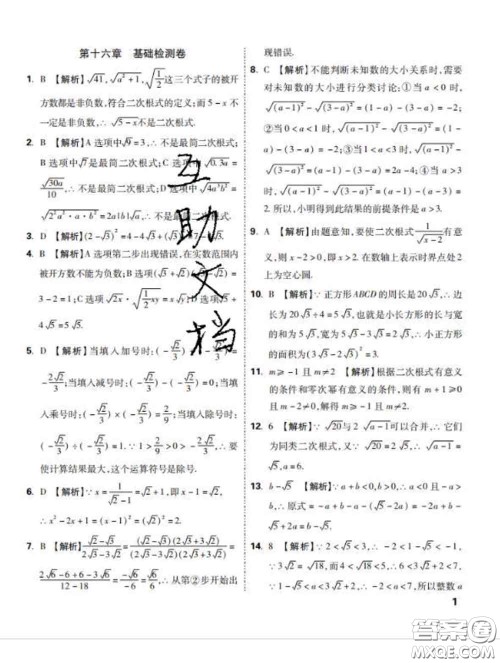 第十六章　基础检测卷
1. B 【解析】√41, √(a²+1), √(1/2)这三个式子的被开
方数都是非负数,符合二次根式的定义;而 5-x 不
一定是非负数,故√(5-x)不是二次根式.
2. B 【解析】A 选项中√9=3,不是最简二次根式;
B 选项中√7是最简二次根式;C 选项中√(0.3a)=
√(30a)/10,不是最简二次根式;D 选项中√(4a³b²)=
3. D 【解析】
A 选项第二步出现错误,在实数范围内
4√5=5√5.
5. D 【解析】当填入加号时:(-√2/3)+(-√2/3)=
-2√2/3;当填入减号时:(-√2/3)-(-√2/3)=0;当填
入乘号时:(-√2/3)×(-√2/3)=2/9;当填入除号时:
(-√2/3)÷(-√2/3)=1.∵1>2/9>0>-2√2/3,∴要
使计算结果最大,这个运算符号是除号.
6. D 【解析】∵x=1/(√2-1)=√2+1,即 x-1=√2,
∴x²-2x+1=(x-1)²=(√2)²=2.
7. B 【解析】∵(√2-√3)/(2√3-3√2)=(√2-√3)(2√3+3√2)/(2√3-3√2)(2√3+3√2)=
(2√6-6+6-3√6)/(12-18)=-√6/-6=√6/6,∴从第②步开始出
现错误.
8. C 【解析】不能判断未知数的大小关系时,需要
对未知数的大小进行分类讨论;①当 a<0 时,
√(a-1)²-√(3-a)²=(1-a)-(3-a)=-2;
②当 0≤a<1 时,√(a-1)²-√(3-a)²=(1-a)
-(3-a)=-2;③当 1≤a<3 时,√(a-1)²-
√(3-a)²=(a-1)-(3-a)=2a-4;④当 a≥3
时,√(a-1)²-√(3-a)²=(a-1)-(a-3)=
2.所以,小明得到此结果的前提条件是 a≥3.
9. A 【解析】由题意可知,要使二次根式1/√(x-2)有意
义,则 x-2>0,即 x>2.在数轴上表示时界点处2
上为空心圆.
10. B 【解析】∵正方形 ABCD 的周长是20√3,∴边
长为20√3÷4=5√3,也就是小长方形的长与宽
的和为5√3,宽为5√3-3√3=2√3,∴小正方形
的面积为(3√3-2√3)²=3.
11. m≥-1 且 m≠1 【解析】根据二次根式有意义
的条件和零次幂有意义的条件,则有 m+1≥0
且 m-1≠0,解得 m≥-1 且 m≠1.
12. 6 【解析】∵√20与2√(a-1)可以合并,∴它们
为同类二次根式,又∵√20=2√5,∴√(a-1)=
√5,a=6.
13. b-√5 【解析】∵a+b<0,b>0,∴a<0 且-a>
b,∴原式=-a+b-a-(√5-2a)=-2a+b-
√5+2a=b-√5.
14. 8 【解析】∵2<√5<3,∴-2<1-√5<-1,
∵3√2=√18,而4<√18<5,∴1+√5<a<
3√2,即-2<1-√5<a<3√2<5,所以整数 a
1
互
助
文
档
答案圈
MXQE.COM